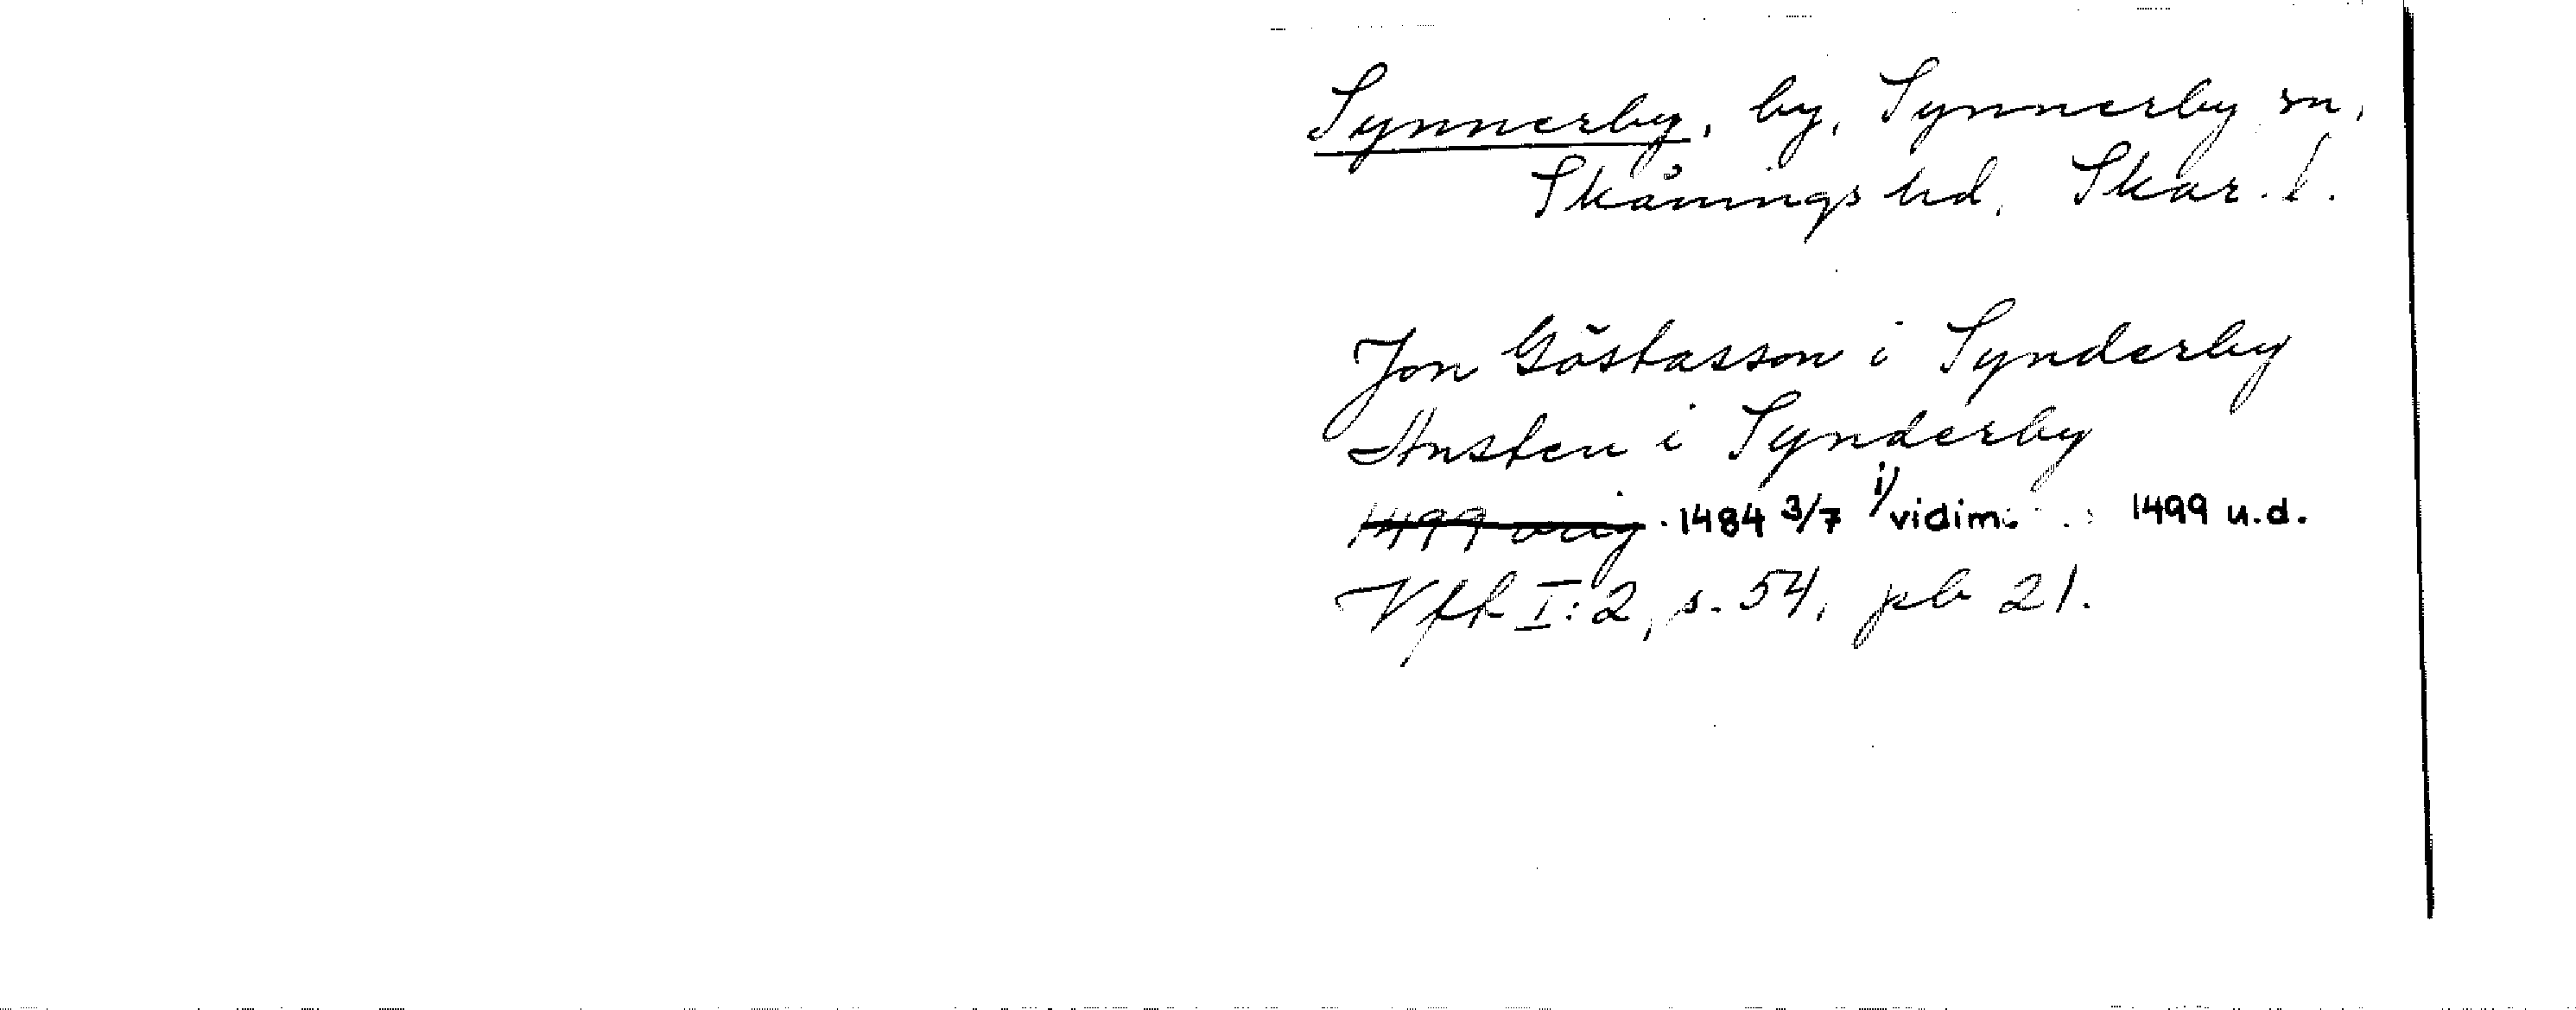 Synnerby, by, Synnerby sn,
Skånings hd, Skar. l.
Jon Göstasson i Synderby
Ansten i Synderby
1499 orig. 1484 3/7 i/ vidim. 1499 u.d.
Vft I:2, s. 54, pb 21.